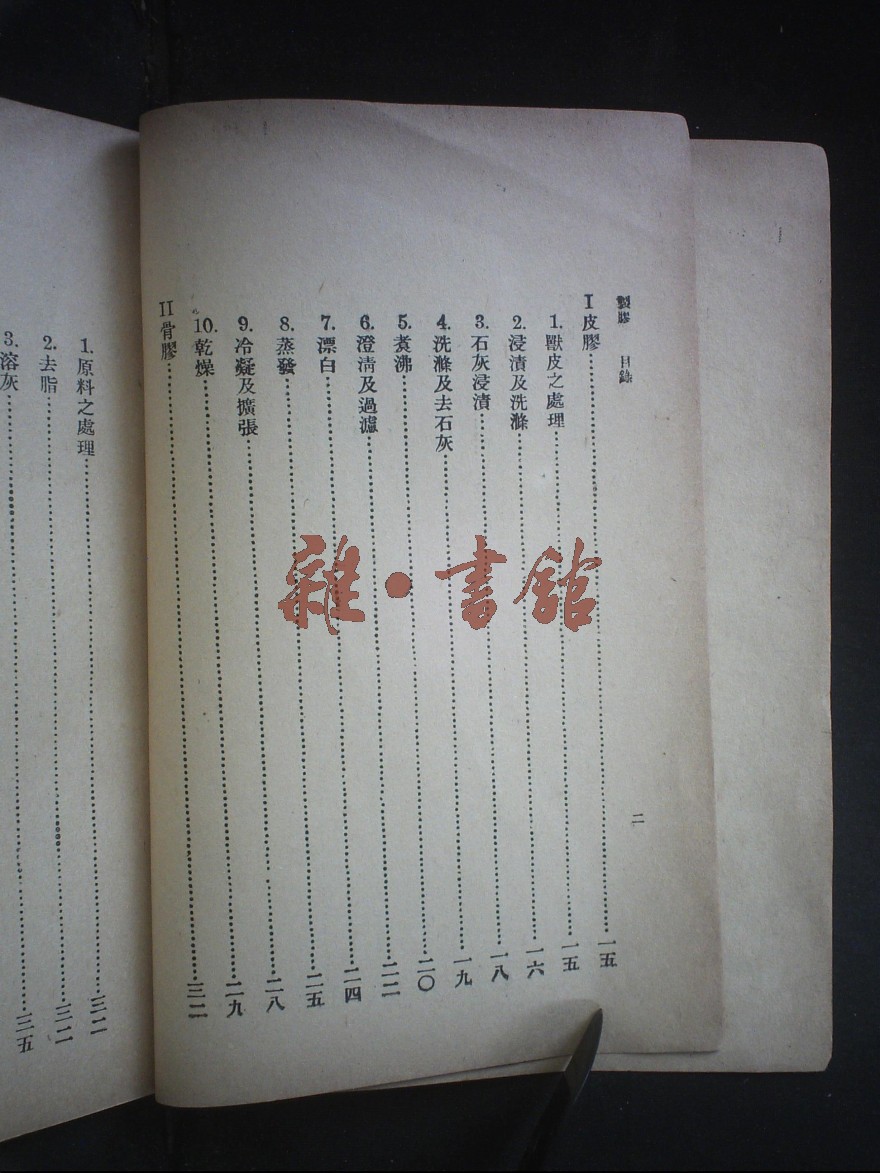 製膠　目錄　二
I 皮膠……一五
1. 獸皮之處理……一五
2. 浸漬及洗滌……一六
3. 石灰浸漬……一八
4. 洗滌及去石灰……一九
5. 煮沸……二〇
6. 澄清及過濾……二二
7. 漂白……二四
8. 蒸發……二五
9. 冷凝及擴張……二八
10. 乾燥……二九
II 骨膠……三二
1. 原料之處理……三二
2. 去脂……三二
3. 溶灰……三五
雜·書館